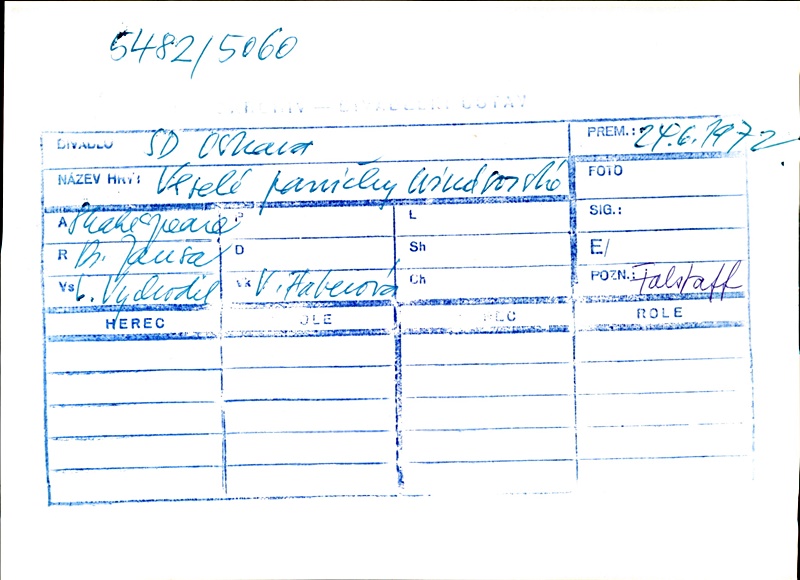 5482/5060
DIVADELNÍ ÚSTAV
DIVADLO SD Ostrava PREM.: 24.6.1972
NÁZEV HRY: Veselé paničky windsorské FOTO
A Shakespeare P L SIG.:
R D Sh E/
Vs L. Vychodil Vk V. Faberová Ch POZN.: Falstaff
HEREC ROLE HEREC ROLE